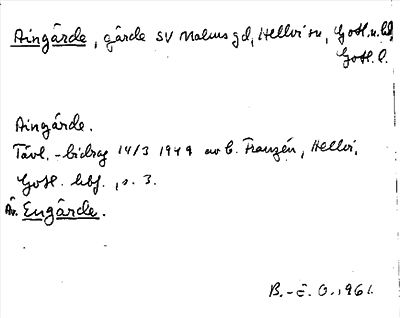 Aingärde, gärde SV Malms gd, Hellvi sn, Gotl. n. hd,
Gotl. l.
Aingärde.
Tävl.-bidrag 14/3 1949 av C. Franzén, Hellvi,
Gotl. hbf., s. 3.
Äv. Engärde.
B.-E. O. 1961.